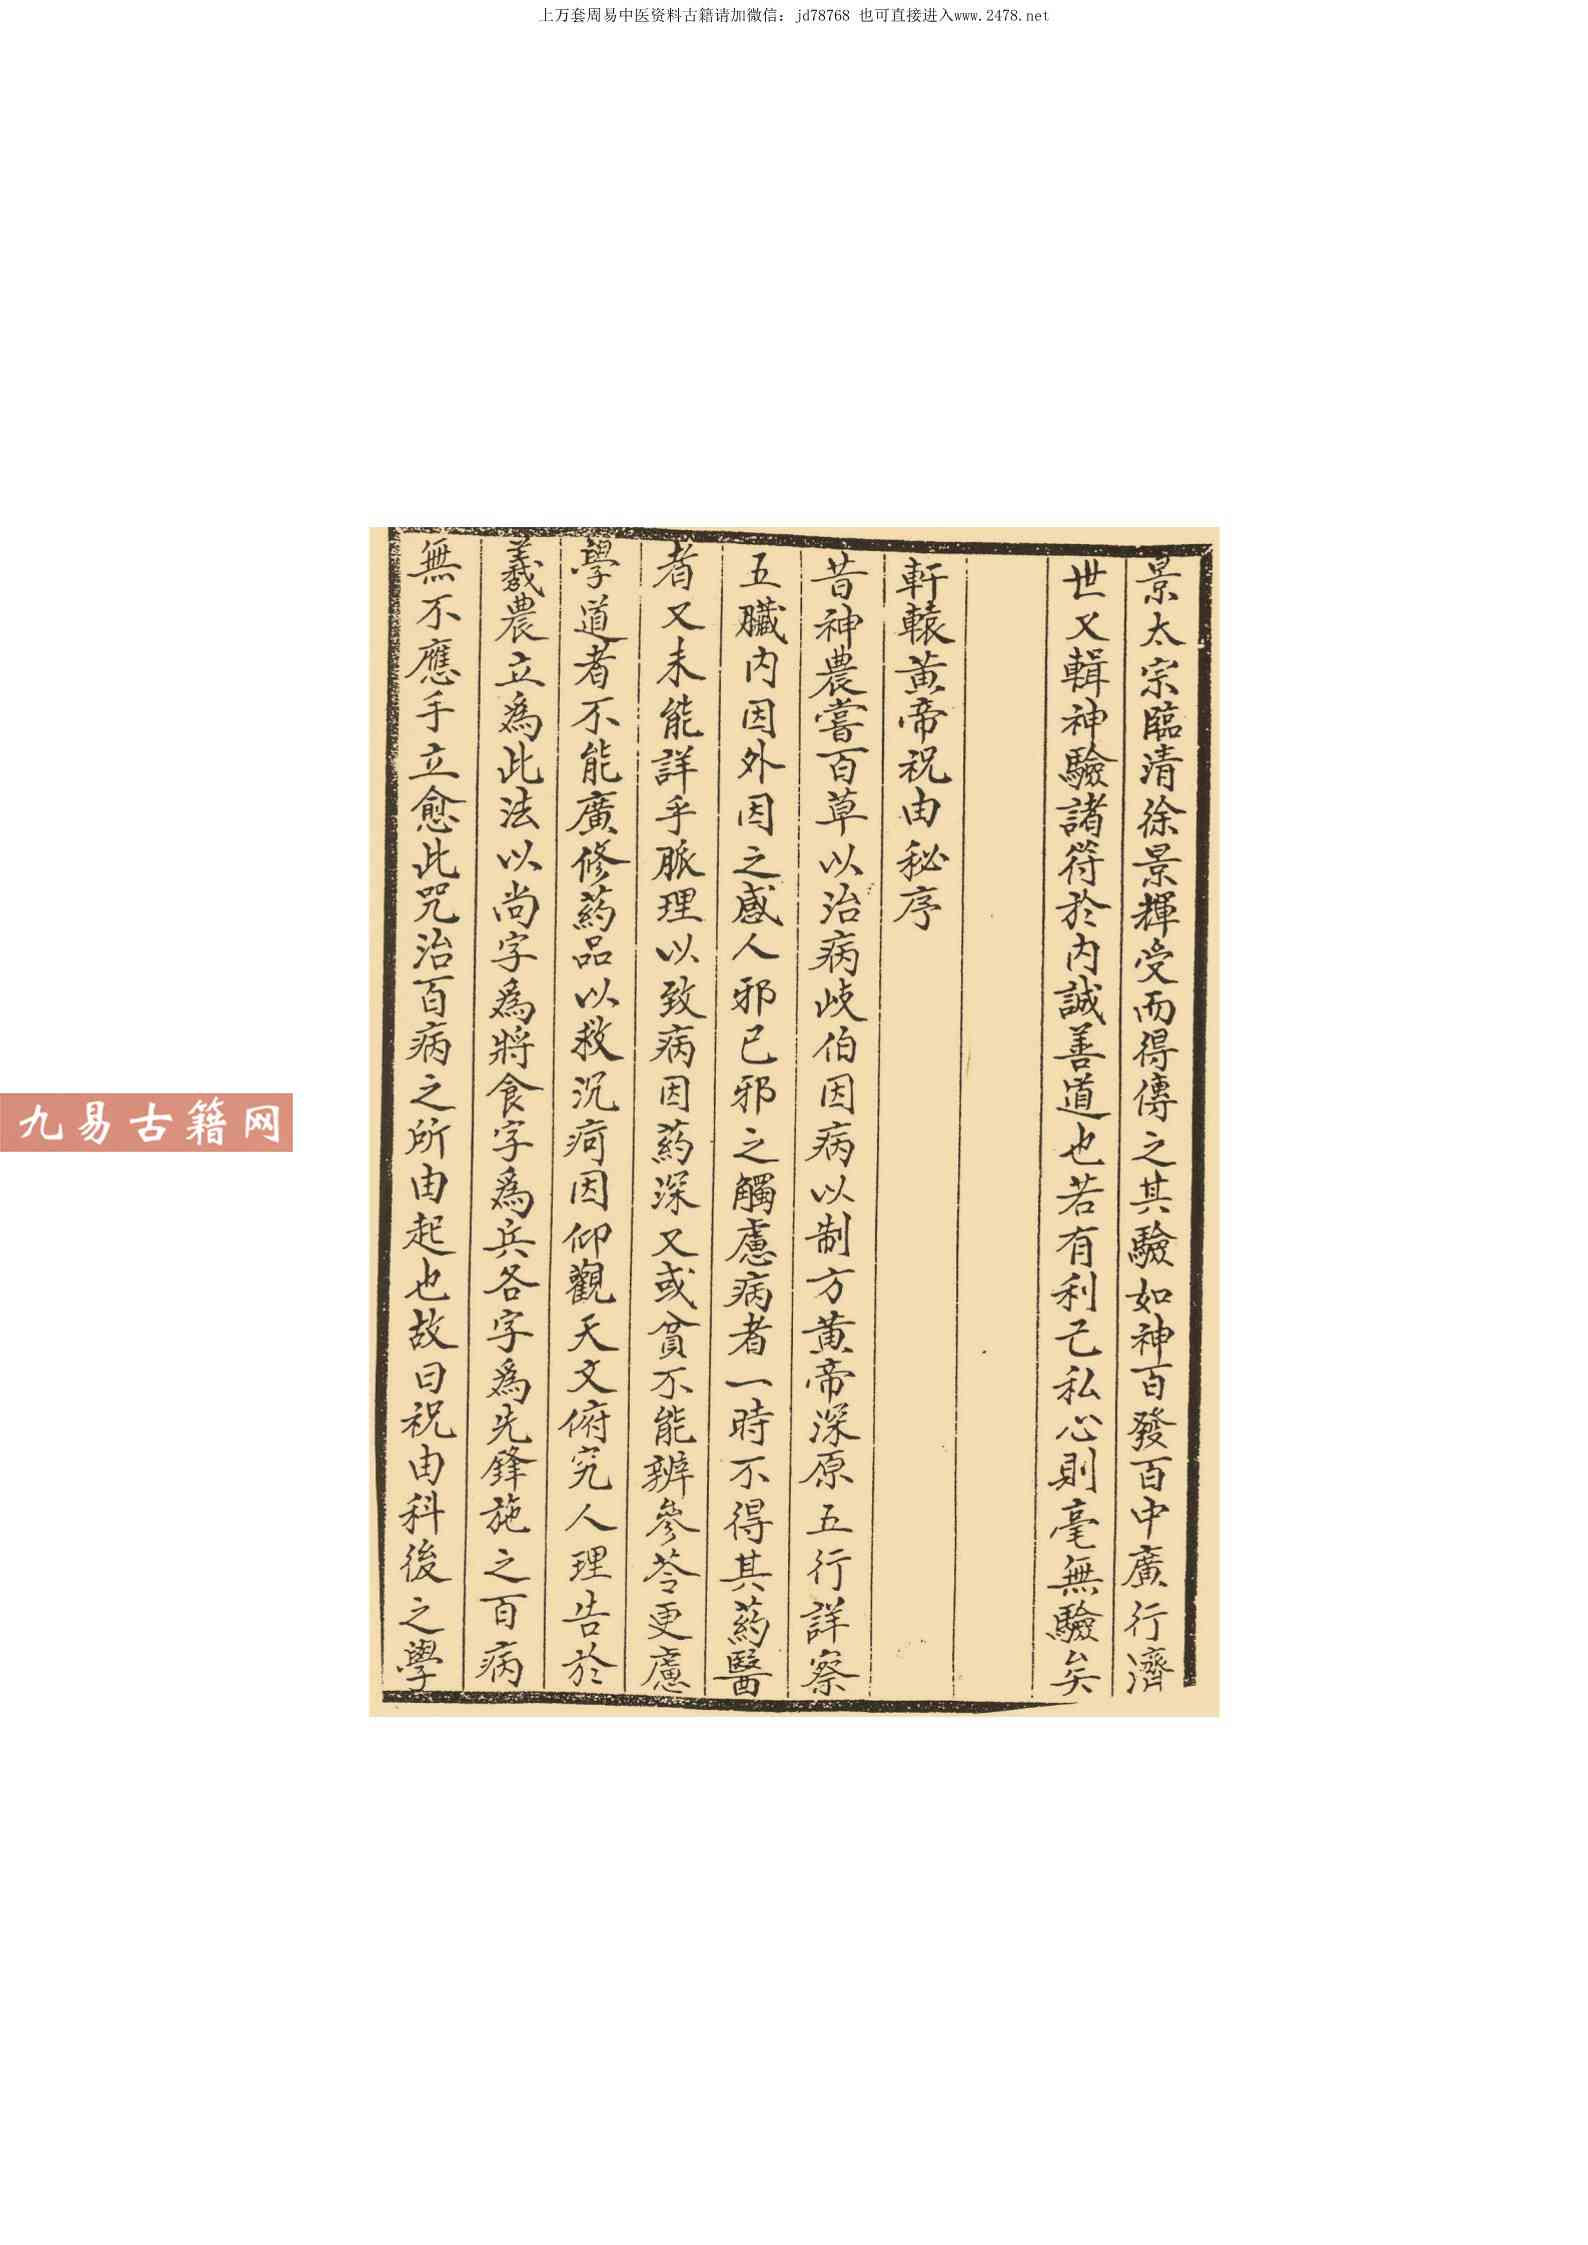 上万套周易中医资料古籍请加微信：jd78768 也可直接进入www.2478.net
景太宗臨清徐景輝受而得傳之其驗如神百發百中廣行濟
世又輯神驗諸符於内誠善道也若有利己私心則毫無驗矣
軒轅黃帝祝由秘序
昔神農嘗百草以治病歧伯因病以制方黃帝深原五行詳察
五臟内因外因之感人邪已邪之觸慮病者一時不得其藥醫
者又未能詳乎脈理以致病因藥深又或貧不能辨參苓更慮
學道者不能廣修藥品以救沉疴因仰觀天文俯究人理告於
羲農立為此法以尚字為將食字為兵各字為先鋒施之百病
無不應手立愈此咒治百病之所由起也故曰祝由科後之學
九易古籍网